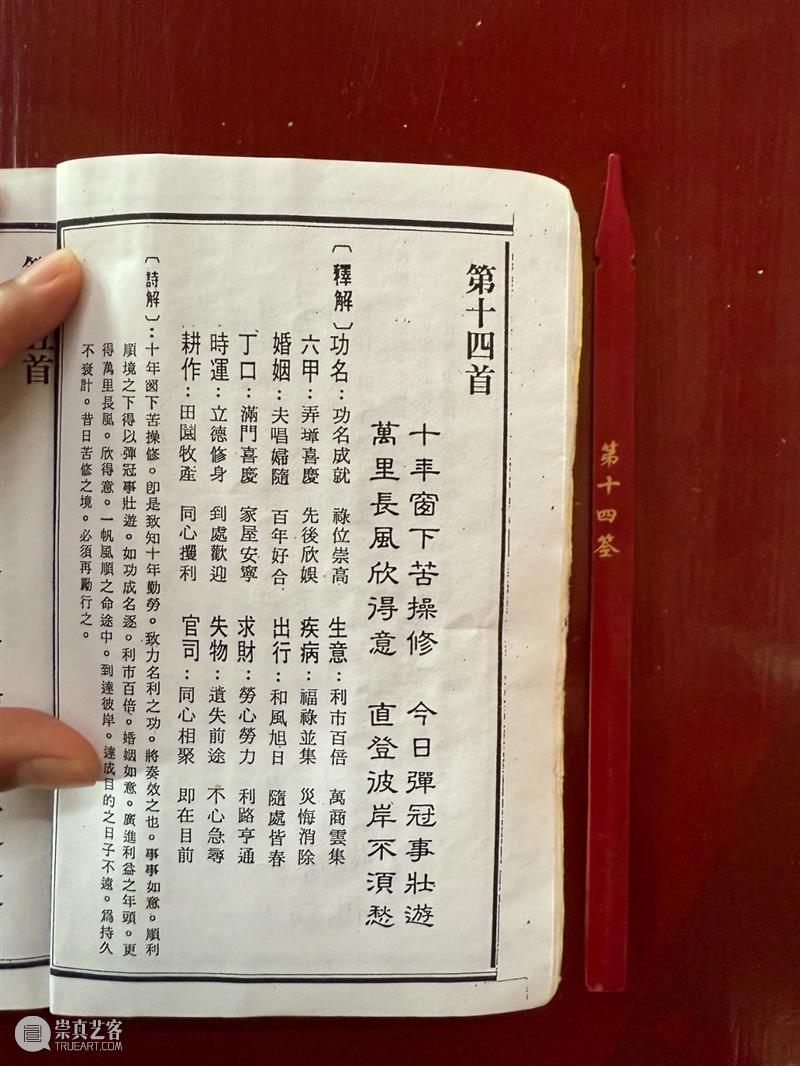 第十四首
十年窗下苦操修　今日彈冠事壯遊
萬里長風欣得意　直登彼岸不須愁
〔釋解〕功名：功名成就　祿位崇高　生意：利市百倍　萬商雲集
六甲：弄璋喜慶　先後欣娛　疾病：福祿並集　災悔消除
婚姻：夫唱婦隨　百年好合　出行：和風旭日　隨處皆春
丁口：滿門喜慶　家屋安寧　求財：勞心勞力　利路亨通
時運：立德修身　到處歡迎　失物：遺失前途　不心急尋
耕作：田園牧產　同心獲利　官司：同心相聚　即在目前
〔詩解〕：十年窗下苦操修。即是致知十年勤勞。致力名利之功。將奏效之也。事事如意。順利
順境之下得以彈冠事壯遊。如功成名逐。利市百倍。婚姻如意。廣進利益之年頭。更
得萬里長風。欣得意。一帆風順之命途中。到達彼岸。達成目的之日子不遠。爲持久
不衰計。昔日苦修之境。必須再勵行之。
首
第十四签
崇真艺客
TRUEART.COM